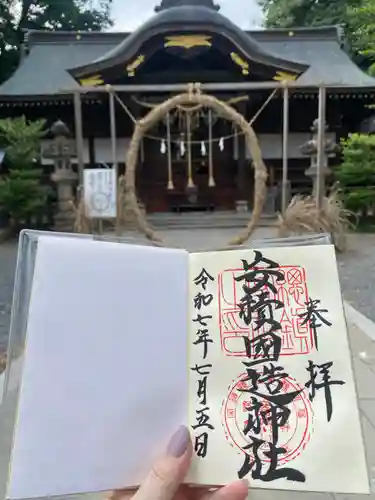 奉拝
安積國造神社
令和七年七月五日